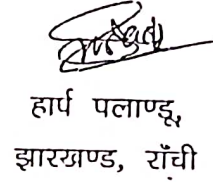 हार्प पलाण्डू,
झारखण्ड, राँची